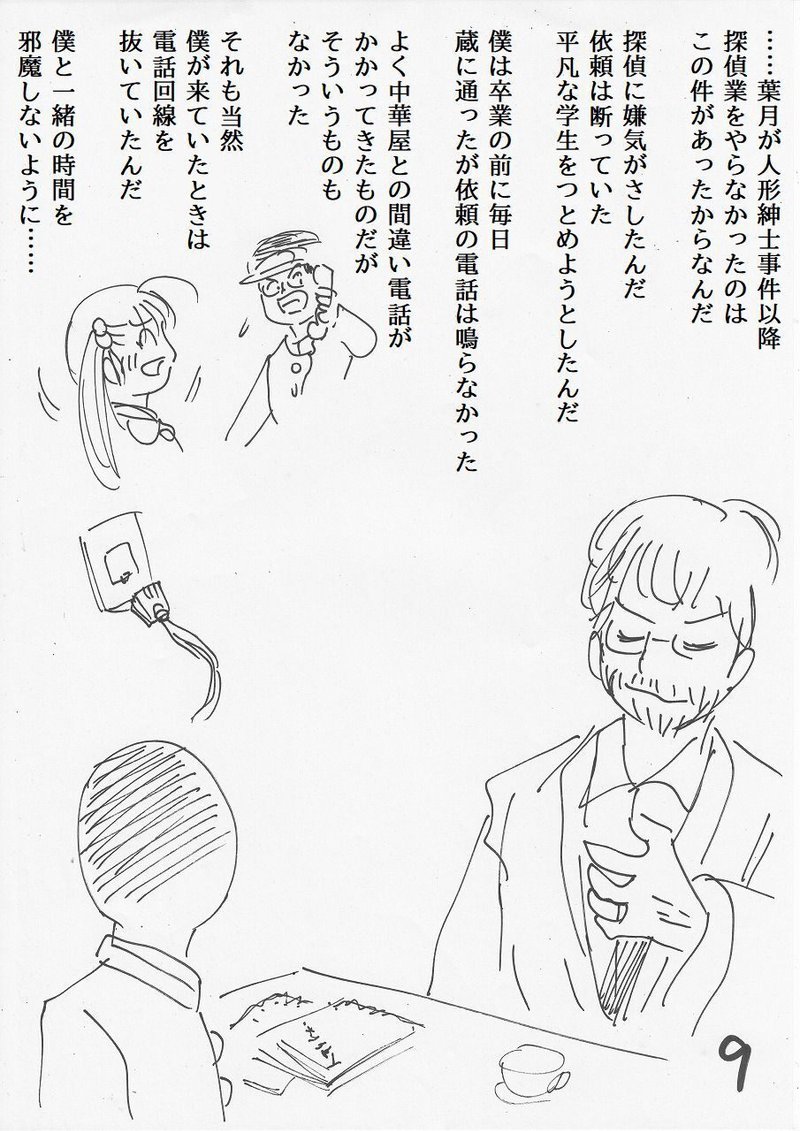 ……葉月が人形紳士事件以降
探偵業をやらなかったのは
この件があったからなんだ
探偵に嫌気がさしたんだ
依頼は断っていた
平凡な学生をつとめようとしたんだ
僕は卒業の前に毎日
蔵に通ったが依頼の電話は鳴らなかった
よく中華屋との間違い電話が
かかってきたものだが
そういうものも
なかった
それも当然
僕が来ていたときは
電話回線を
抜いていたんだ
僕と一緒の時間を
邪魔しないように……
9